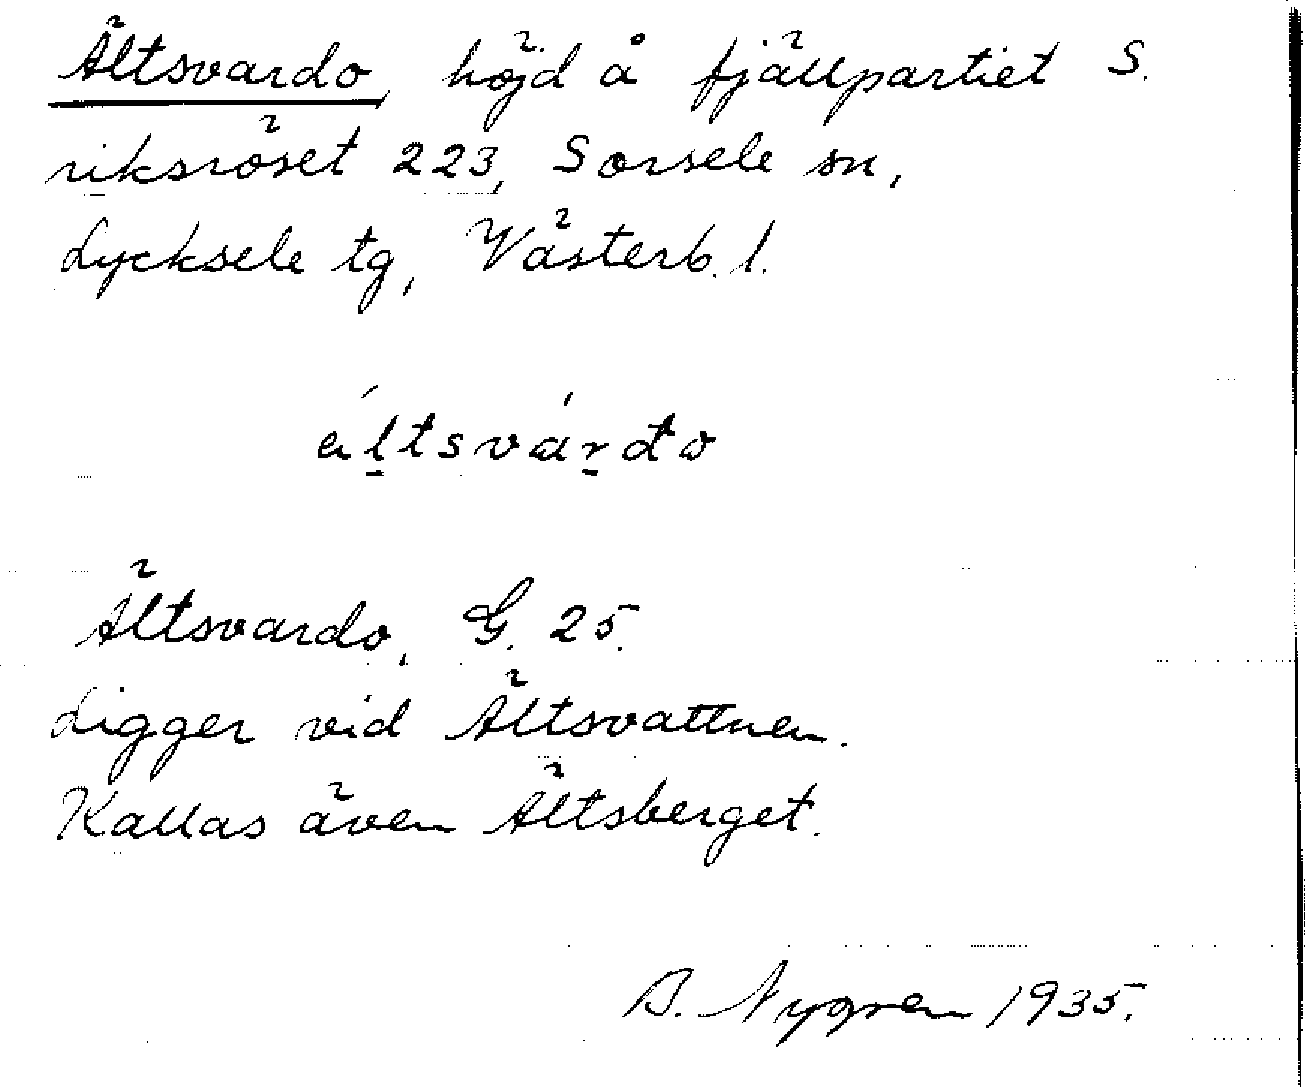 Ältsvardo, höjd å fjällpartiet S.
riksröset 223, Sorsele sn,
Lycksele tg, Västerb. l.
áltsvárdo
Ältsvardo, G. 25.
Ligger vid Ältsvattnen.
Kallas även Ältsberget.
B. Nygren 1935.